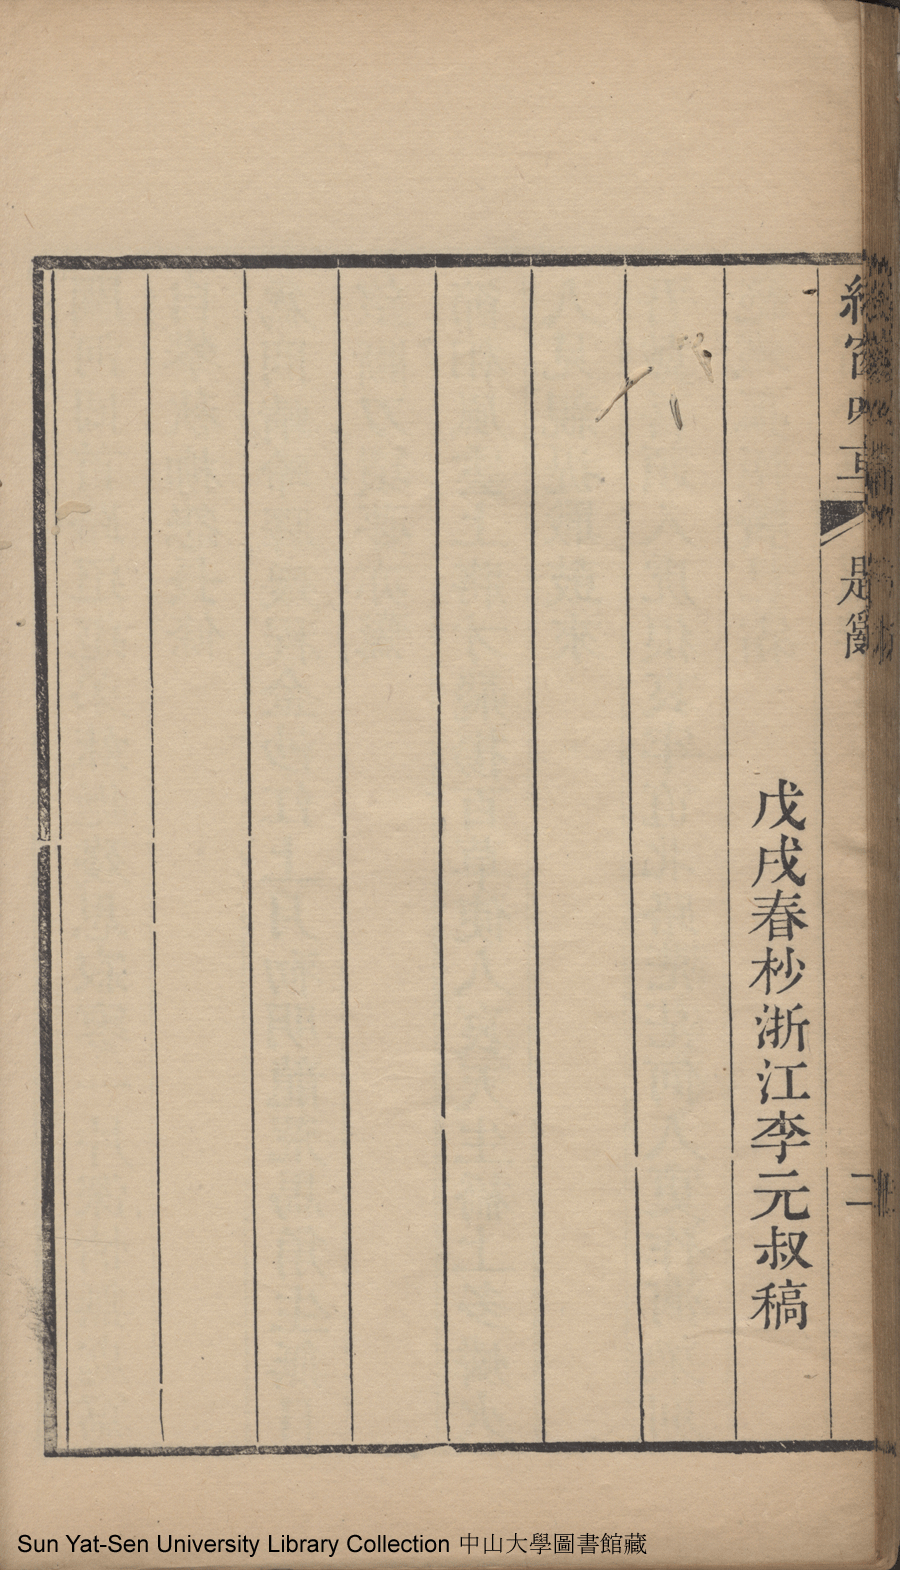 戊戌春杪浙江李元叔稿
二
Sun Yat-Sen University Library Collection 中山大學圖書館藏